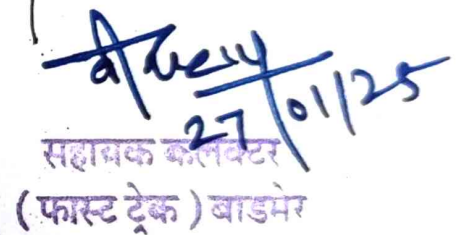 27/01/25
सहायक कलक्टर
( फास्ट ट्रेक ) बाडमेर